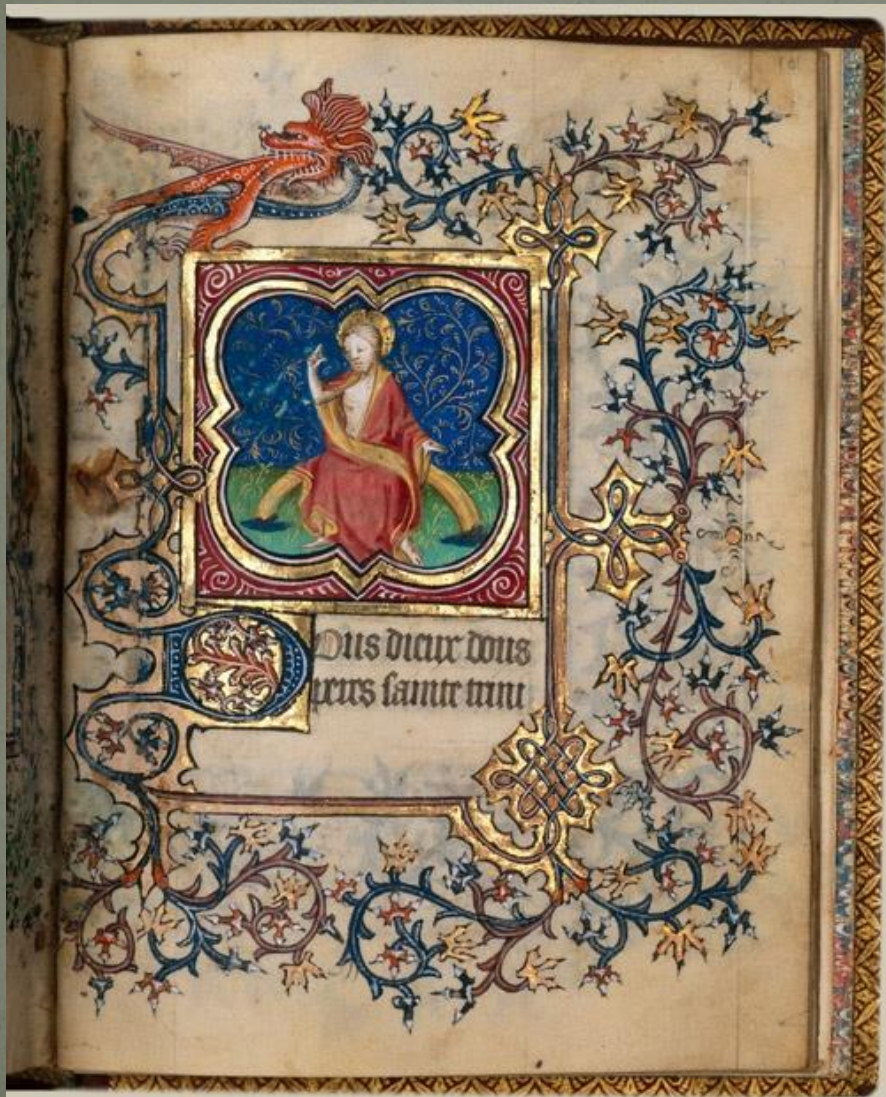 DOus dieux dous
peres sainte trini